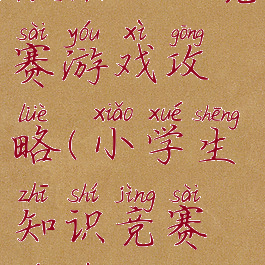 sài yóu xì gōng
赛游戏攻
lüè xiǎo xué shēng
略(小学生
zhī shí jìng sài
知识竞赛